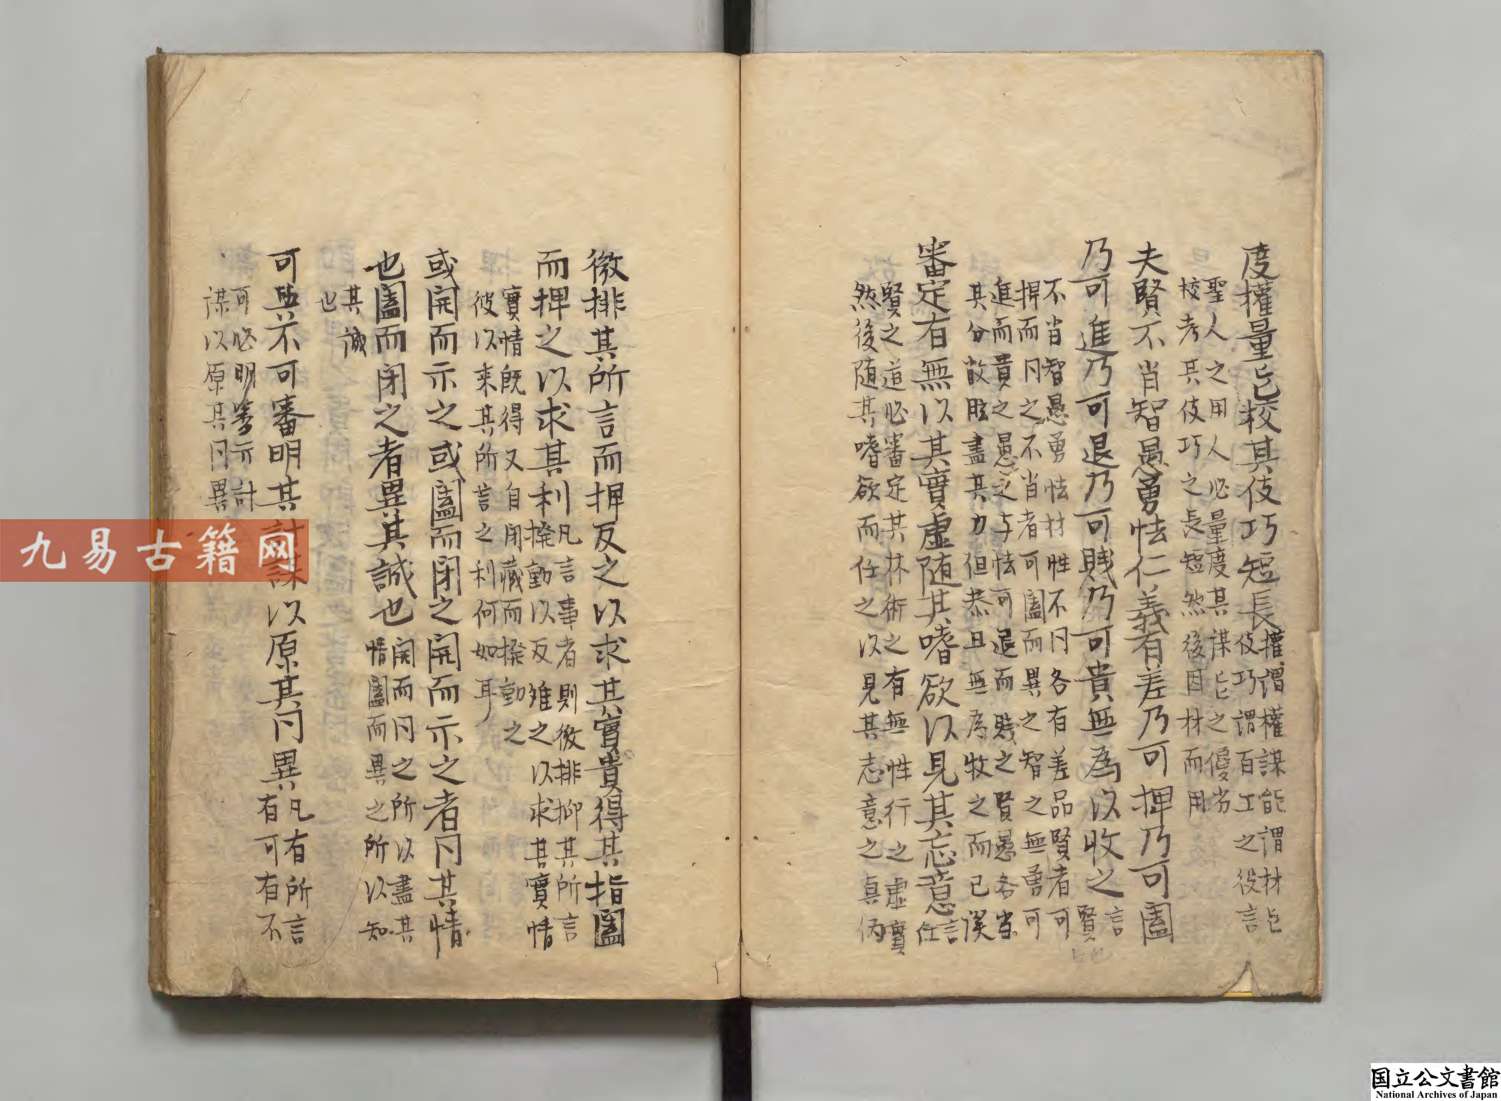 度權量能校其伎巧短長權謂權謀能謂材能
伎巧謂百工之役言
聖人之用人必量度其謀能之優劣
校考其伎巧之長短然後因材而用
夫賢不肖智愚勇怯仁義有差乃可捭乃可闔
乃可進乃可退乃可賤乃可貴無為以收之言
賢
不肖智愚勇怯材性不同各有差品賢者可
捭而同之不肖者可闔而異之智之無勇可
進而貴之愚之与怯可退而賤之賢愚各當
其分敢股盡其力但恭且無為牧之而已誤
審定有無以其實虛隨其嗜欲以見其志意言
任
賢之道必審定其材術之有無性行之虛實
然後隨其嗜欲而任之以見其志意之真偽
微排其所言而捭反之以求其實貴得其指闔
而捭之以求其利凡言事者則微排抑其所言
撥動以反难之以求其實情
實情既得又自閉藏而撥動之
彼以來其所言之利何如耳
或開而示之或闔而閉之開而示之者同其情
也闔而閉之者異其誠也開而同之所以盡其
情闔而異之所以知
其誠
也
可與不可審明其計謀以原其同異凡有所言
有可有不
可必明審示計
謀以原其同異
九易古籍网
国立公文書館
National Archives of Japan